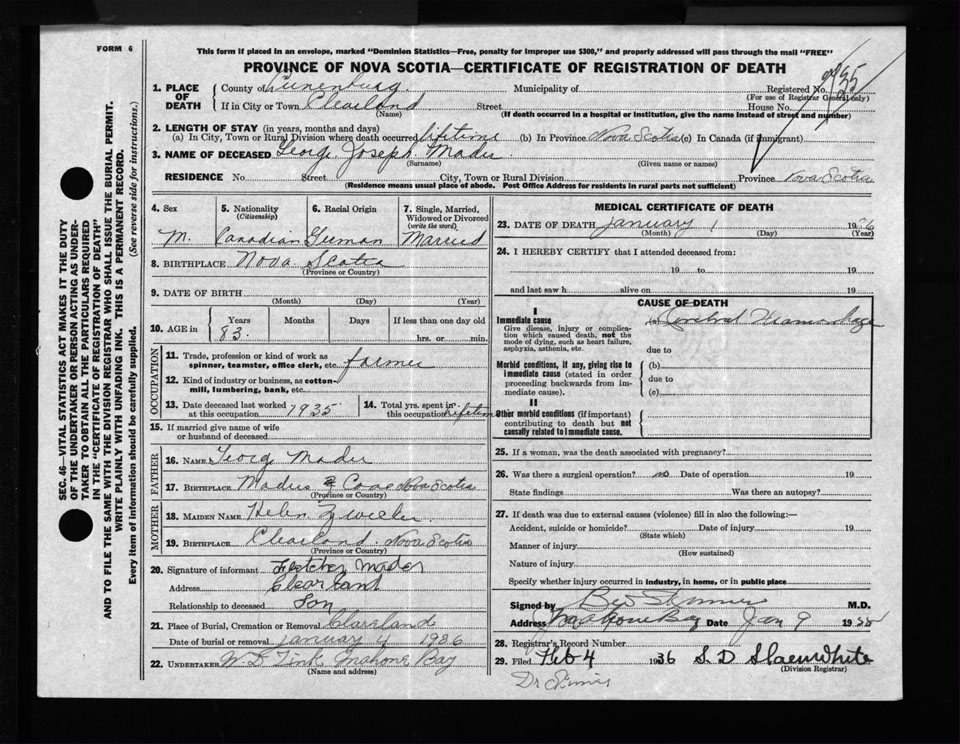 FORM 6
This form if placed in an envelope, marked "Dominion Statistics—Free, penalty for improper use $300," and properly addressed will pass through the mail "FREE"
PROVINCE OF NOVA SCOTIA—CERTIFICATE OF REGISTRATION OF DEATH
1. PLACE OF DEATH
County of Lunenburg Municipality of Registered No.
(For use of Registrar General only)
If in City or Town Clearland Street House No.
(Name) (If death occurred in a hospital or institution, give the name instead of street and number)
2. LENGTH OF STAY (in years, months and days)
(a) In City, Town or Rural Division where death occurred lifetime (b) In Province Nova Scotia (c) In Canada (if immigrant)
3. NAME OF DECEASED George Joseph Mader
(Surname) (Given name or names)
RESIDENCE No. Street City, Town or Rural Division Province Nova Scotia
(Residence means usual place of abode. Post Office Address for residents in rural parts not sufficient)
4. Sex M.
5. Nationality (Citizenship) Canadian
6. Racial Origin German
7. Single, Married, Widowed or Divorced (write the word) Married
8. BIRTHPLACE Nova Scotia
(Province or Country)
9. DATE OF BIRTH
(Month) (Day) (Year)
10. AGE in Years 83 Months Days If less than one day old hrs. or min.
OCCUPATION
11. Trade, profession or kind of work as spinner, teamster, office clerk, etc. farmer
12. Kind of industry or business, as cotton-mill, lumbering, bank, etc.
13. Date deceased last worked at this occupation 1935
14. Total yrs. spent in this occupation lifetime
15. If married give name of wife or husband of deceased
FATHER
16. NAME George Mader
17. BIRTHPLACE Maders Cove Nova Scotia
(Province or Country)
MOTHER
18. MAIDEN NAME Helen Zwicker
19. BIRTHPLACE Clearland Nova Scotia
(Province or Country)
20. Signature of informant Fletcher Mader
Address Clearland
Relationship to deceased Son
21. Place of Burial, Cremation or Removal Clearland
Date of burial or removal January 4 1936
22. UNDERTAKER Mahone Bay
(Name and address)
MEDICAL CERTIFICATE OF DEATH
23. DATE OF DEATH January 1 1936
(Month) (Day) (Year)
24. I HEREBY CERTIFY that I attended deceased from:
19 to 19
and last saw h alive on 19
CAUSE OF DEATH
I
Immediate cause
Give disease, injury or complication which caused death, not the mode of dying, such as heart failure, asphyxia, asthenia, etc.
(a) Cerebral Hemorrhage
due to
Morbid conditions, if any, giving rise to immediate cause (stated in order proceeding backwards from immediate cause).
(b)
due to
(c)
II
Other morbid conditions (if important) contributing to death but not causally related to immediate cause.
25. If a woman, was the death associated with pregnancy?
26. Was there a surgical operation? no Date of operation 19
State findings Was there an autopsy?
27. If death was due to external causes (violence) fill in also the following:—
Accident, suicide or homicide? Date of injury 19
(State which)
Manner of injury
(How sustained)
Nature of injury
Specify whether injury occurred in industry, in home, or in public place
Signed by M.D.
Address Mahone Bay Date Jan 9 19
28. Registrar's Record Number
29. Filed Feb 4 1936 S. D.
(Division Registrar)
Dr
SEC. 46—VITAL STATISTICS ACT MAKES IT THE DUTY
OF THE UNDERTAKER OR PERSON ACTING AS UNDER-
TAKER TO OBTAIN ALL THE PARTICULARS REQUIRED
IN THE "CERTIFICATE OF REGISTRATION OF DEATH"
AND TO FILE THE SAME WITH THE DIVISION REGISTRAR WHO SHALL ISSUE THE BURIAL PERMIT.
WRITE PLAINLY WITH UNFADING INK. THIS IS A PERMANENT RECORD.
Every item of information should be carefully supplied. (See reverse side for instructions.)